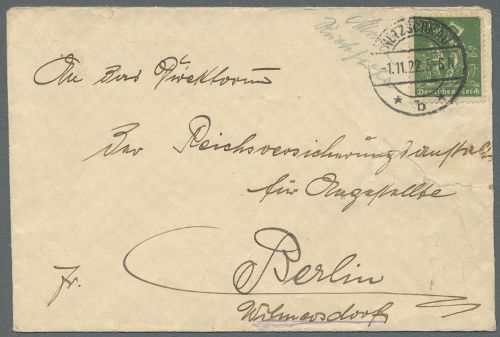 NETZSCHKAU
-1.11.22. 5-6 N
* b *
Deutsches Reich
An das Direktorium
der Reichsversicherungsanstalt
für Angestellte
Fr.
Berlin
Wilmersdorf